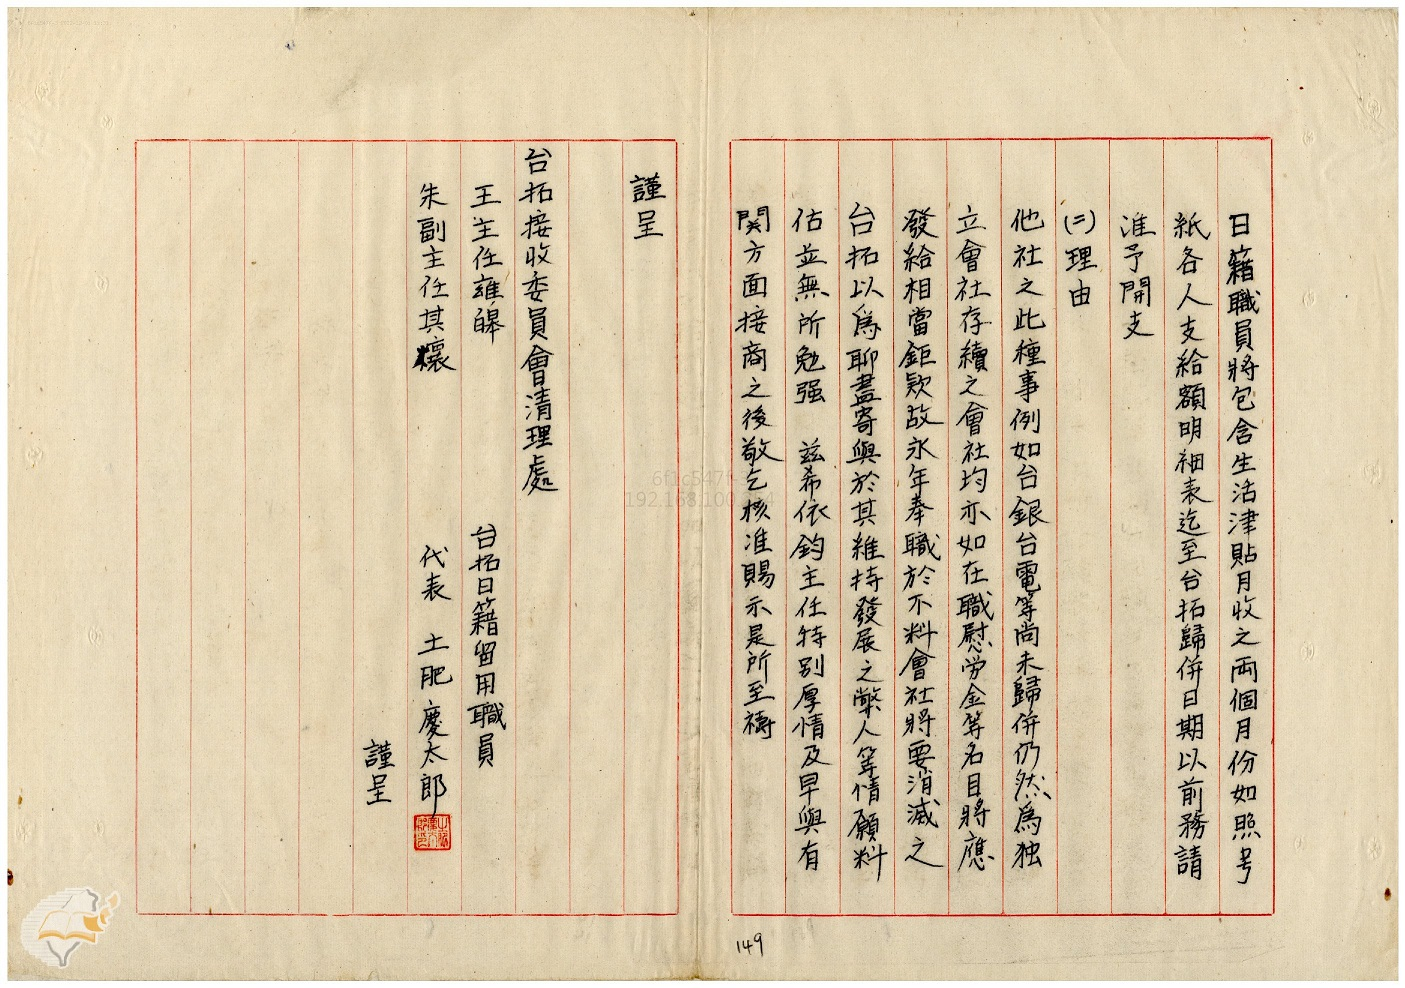 日籍職員將包含生活津貼月收之両個月份如照号
紙各人支給額明細表迄至台拓歸併日期以前務請
准予開支
(二)理由
他社之此種事例如台銀台電等尚未歸併仍然為独
立會社存續之會社均亦如在職慰労金等名目將應
發給相當鉅款故永年奉職於不料會社將要消滅之
台拓以為聊盡寄與於其維持發展之弊人等情願料
估並無所勉强 茲希依鈞主任特別厚情及早與有
関方面接商之後敬乞核准賜示是所至禱
謹呈
台拓接收委員會清理處
王主任雍皞
朱副主任其懷
台拓日籍留用職員
代表 土肥慶太郎
謹呈
149
6f1c547f
192.168.100.